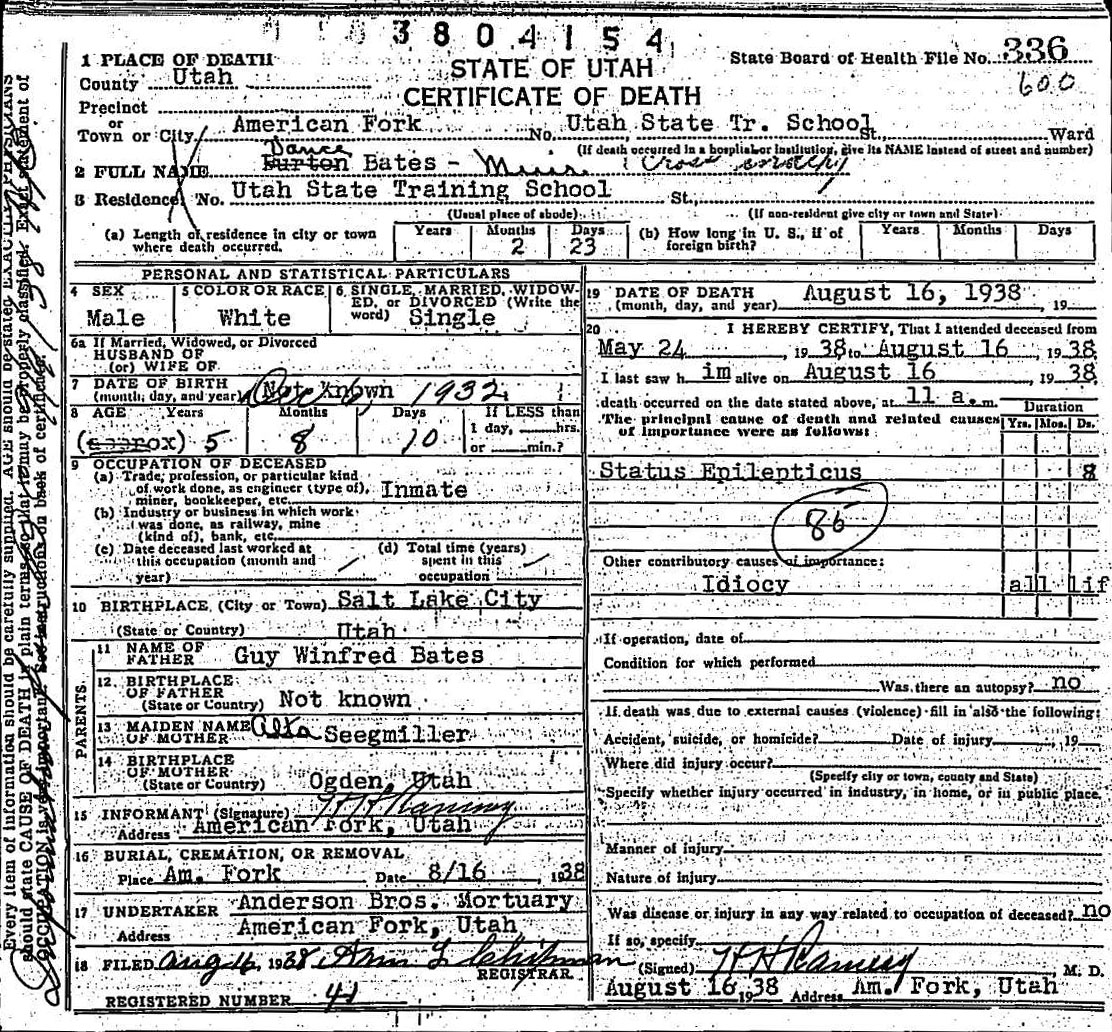 3804154
STATE OF UTAH
CERTIFICATE OF DEATH
State Board of Health File No. 336
600
1 PLACE OF DEATH
County Utah
Precinct
or
Town or City American Fork No. Utah State Tr. School St., Ward
(If death occurred in a hospital or institution, give its NAME instead of street and number)
2 FULL NAME Burton Bates -
3 Residence No. Utah State Training School St.,
(Usual place of abode) (If non-resident give city or town and State)
(a) Length of residence in city or town where death occurred. Years Months 2 Days 23
(b) How long in U. S., if of foreign birth? Years Months Days
PERSONAL AND STATISTICAL PARTICULARS
4 SEX Male
5 COLOR OR RACE White
6 SINGLE, MARRIED, WIDOWED, or DIVORCED (Write the word) Single
6a If Married, Widowed, or Divorced
HUSBAND OF
(or) WIFE OF
7 DATE OF BIRTH (month, day, and year) Not known 1932
8 AGE Years Months Days If LESS than
1 day, hrs.
(approx) 5 8 10 or min.?
9 OCCUPATION OF DECEASED
(a) Trade, profession, or particular kind
of work done, as engineer (type of),
miner, bookkeeper, etc. Inmate
(b) Industry or business in which work
was done, as railway, mine
(kind of), bank, etc.
(c) Date deceased last worked at
this occupation (month and
year)
(d) Total time (years)
spent in this
occupation
10 BIRTHPLACE (City or Town) Salt Lake City
(State or Country) Utah
PARENTS
11 NAME OF FATHER Guy Winfred Bates
12 BIRTHPLACE OF FATHER (State or Country) Not known
13 MAIDEN NAME OF MOTHER Alta Seegmiller
14 BIRTHPLACE OF MOTHER (State or Country) Ogden, Utah
15 INFORMANT (Signature) H H Ramsey
Address American Fork, Utah
16 BURIAL, CREMATION, OR REMOVAL
Place Am. Fork Date 8/16 1938
17 UNDERTAKER Anderson Bros. Mortuary
Address American Fork, Utah
18 FILED Aug 16, 1938 Chipman
REGISTRAR.
REGISTERED NUMBER 41
19 DATE OF DEATH (month, day, and year) August 16, 1938 , 19
20 I HEREBY CERTIFY, That I attended deceased from
May 24 , 19 38 to August 16 , 19 38
I last saw h im alive on August 16 , 19 38
death occurred on the date stated above, at 11 a. m.
The principal cause of death and related causes
of importance were as follows:
Duration
Yrs. Mos. Ds.
Status Epilepticus 8
85
Other contributory causes of importance:
Idiocy all lif
If operation, date of
Condition for which performed
Was there an autopsy? no
If death was due to external causes (violence) fill in also the following:
Accident, suicide, or homicide? Date of injury , 19
Where did injury occur?
(Specify city or town, county and State)
Specify whether injury occurred in industry, in home, or in public place.
Manner of injury
Nature of injury
Was disease or injury in any way related to occupation of deceased? no
If so, specify
(Signed) H H Ramsey , M. D.
August 16 1938 Address Am. Fork, Utah
Every item of information should be carefully supplied. AGE should be stated EXACTLY. PHYSICIANS
should state CAUSE OF DEATH in plain terms, so that it may be properly classified. Exact statement of
OCCUPATION is very important. See instructions on back of certificate.